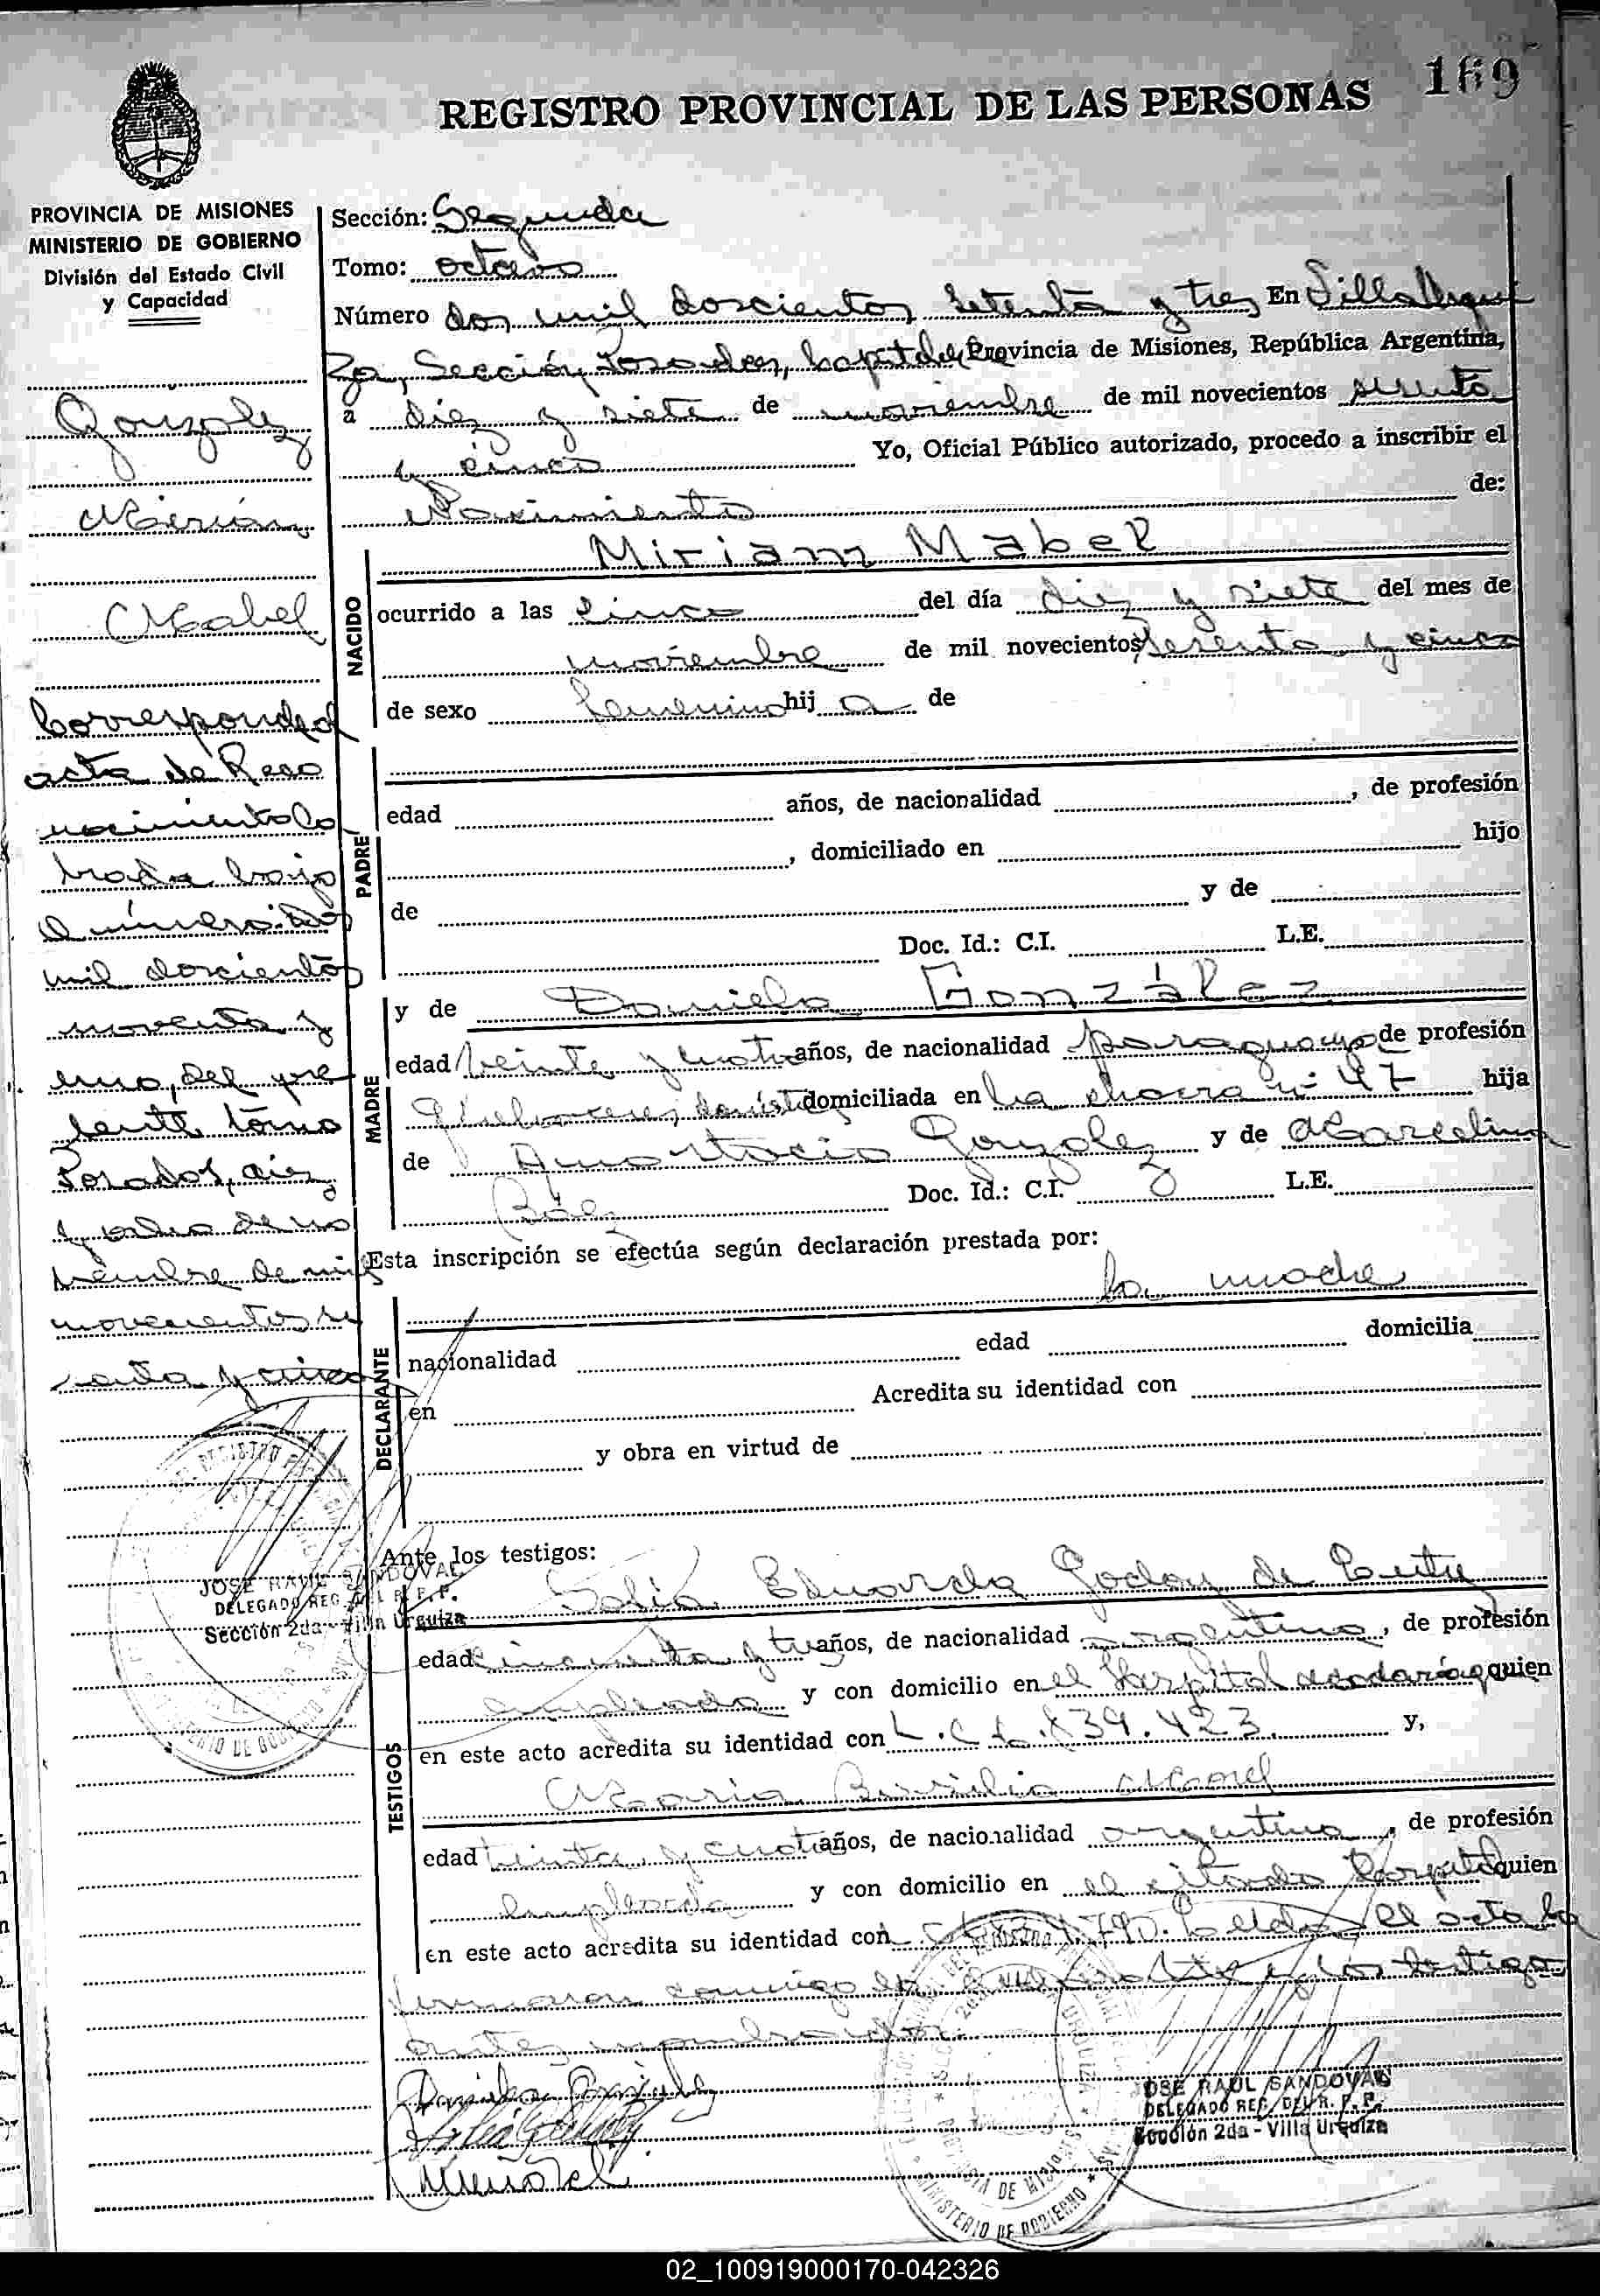 169
REGISTRO PROVINCIAL DE LAS PERSONAS
PROVINCIA DE MISIONES
MINISTERIO DE GOBIERNO
División del Estado Civil
y Capacidad
González
Mirian
Mabel
Corresponde al
acta de Reco
nocimiento la
brada bajo
el número dos
mil doscientos
noventa y
uno, del pre
sente tomo
Posadas, diez
y ocho de no
viembre de mil
novecientos se
senta y cinco
JOSE RAUL SANDOVAL
DELEGADO REG. DEL R. P. P.
Sección 2da - Villa Urquiza
Sección: Segunda
Tomo: octavo
Número dos mil doscientos setenta y tres En Villa Urquiza
2a, Sección, Posadas, Capital de Provincia de Misiones, República Argentina,
a diez y siete de noviembre de mil novecientos sesenta
y cinco Yo, Oficial Público autorizado, procedo a inscribir el
Nacimiento de:
NACIDO
Miriam Mabel
ocurrido a las cinco del día diez y siete del mes de
noviembre de mil novecientos sesenta y cinco
de sexo femenino hij a de
PADRE
edad años, de nacionalidad , de profesión
, domiciliado en hijo
de y de
Doc. Id.: C.I. L.E.
MADRE
y de Daniela González
edad veinte y cuatro años, de nacionalidad paraguaya de profesión
quehaceres domésticos domiciliada en la chacra nº 47 hija
de Anastacio González y de Marcelina
Báez Doc. Id.: C.I. L.E.
Esta inscripción se efectúa según declaración prestada por:
la madre
DECLARANTE
nacionalidad edad domicilia
en Acredita su identidad con
y obra en virtud de
Ante los testigos:
TESTIGOS
Eduarda Godoy de
edad cincuenta y tres años, de nacionalidad argentina, de profesión
empleada y con domicilio en el Hospital Madariaga quien
en este acto acredita su identidad con L.C. 839.423. y,
María Morel
edad treinta y cuatro años, de nacionalidad argentina, de profesión
empleada y con domicilio en el citado Hospital quien
en este acto acredita su identidad con 790. Leída el acta la
firmaron conmigo la y los testigos
antes nombrados.
JOSE RAUL SANDOVAL
DELEGADO REG. DEL R. P. P.
Sección 2da - Villa Urquiza
02_100919000170-042326